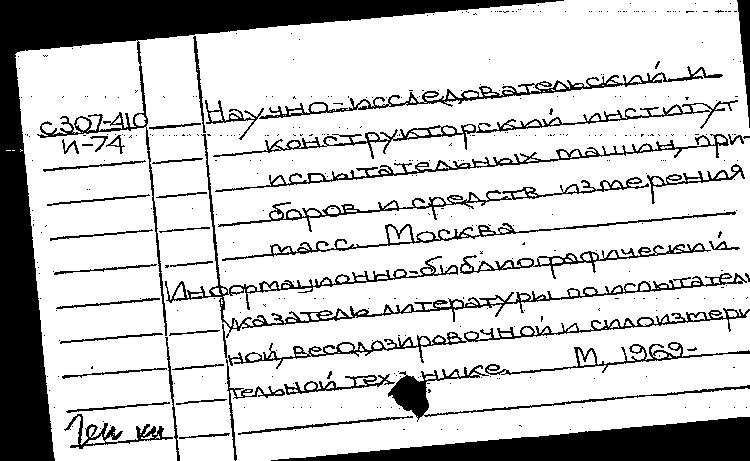 Научно-исследовательский и
с307-410
И-74
конструкторский институт
испытательных машин, при-
боров и средств измерения
масс. Москва
Информационно-библиографический
указатель литературы по испытатель
ной, весодозировочной и силоизмери
тельной технике. М., 1969-